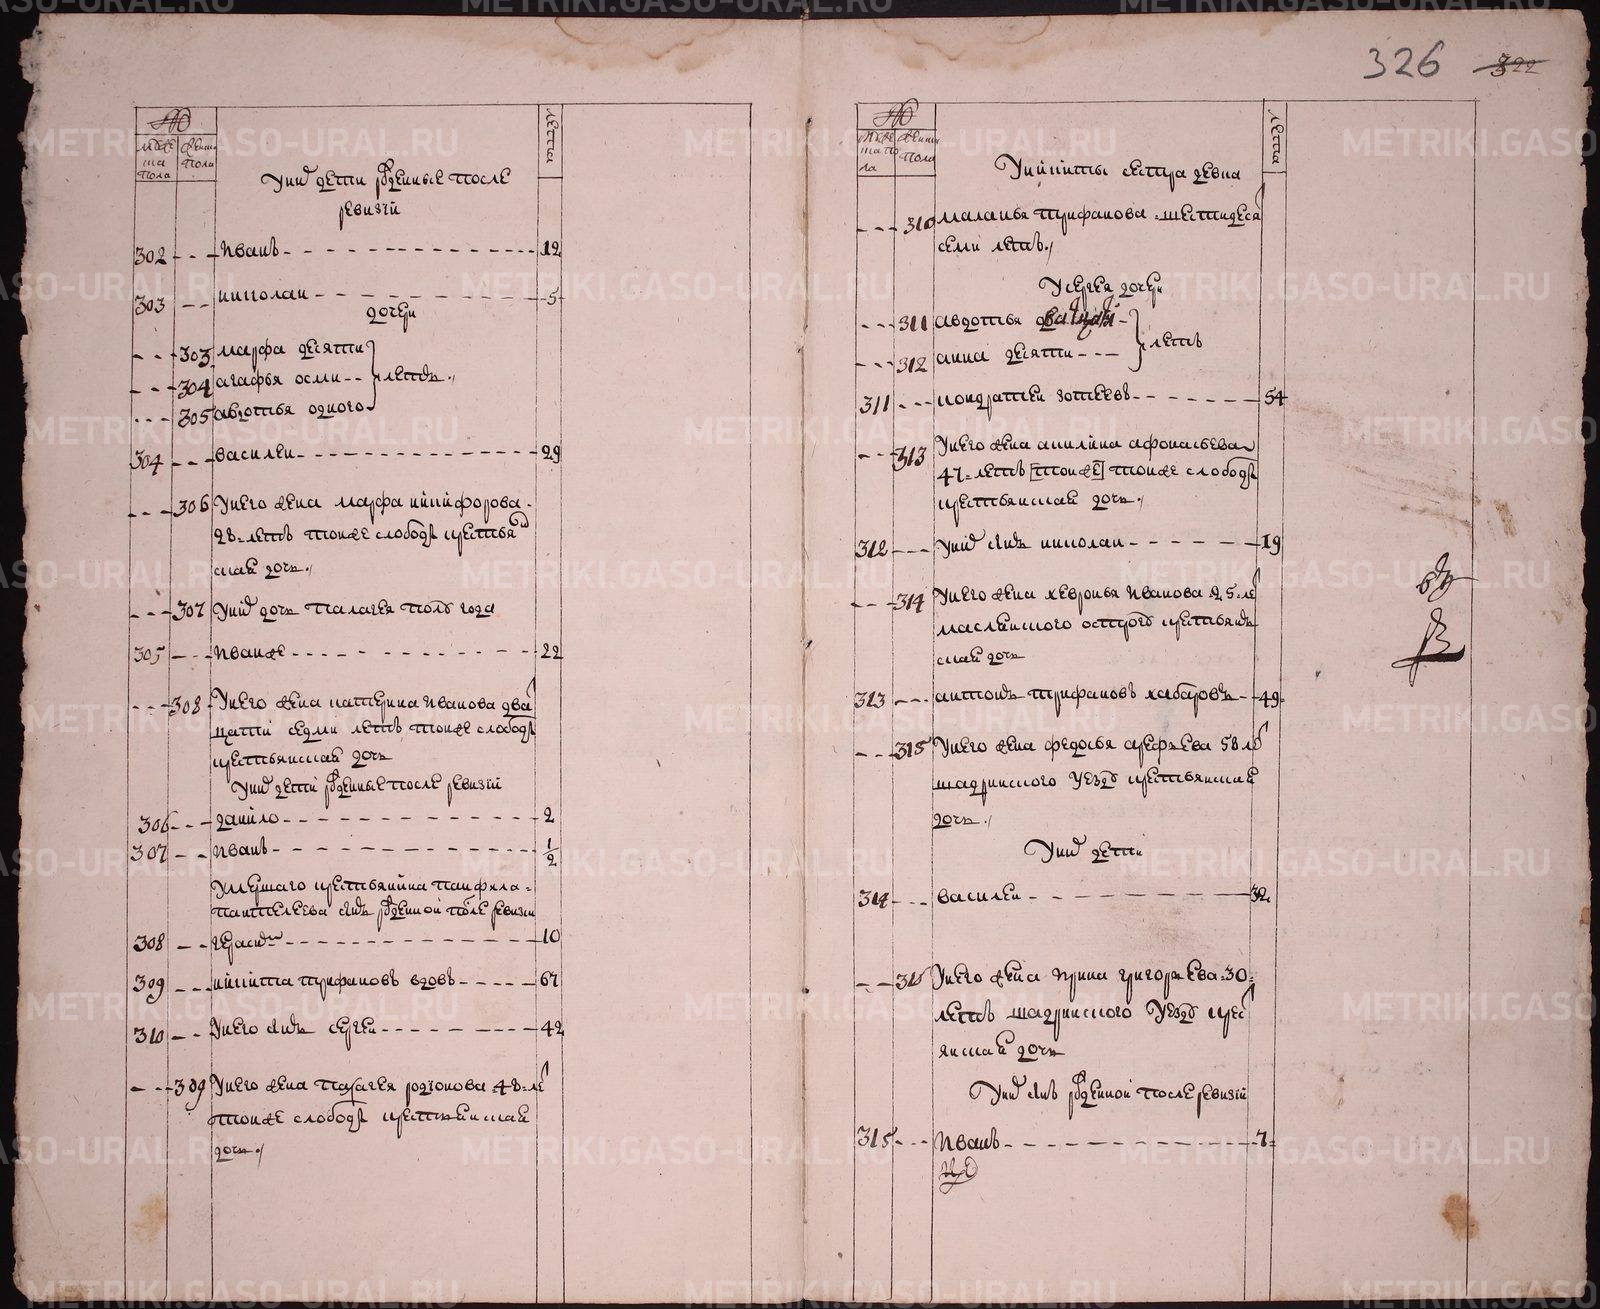 326 322
№
мужеска пола
женска пола
лета
У них дети рожденные после
ревизии
302 иванъ 12
303 николаи 5
дочери
303 марфа десяти
304 агафья осми летъ
305 авдотья одного
304 василеи 29
306 У него жена марфа никифорова
28 летъ тоиже слободы крестьян
ская дочь
307 У них дочь палагея полу года
305 иванже 22
308 У него жена катерина иванова два
цати седми летъ тоиже слободы
крестьянская дочь
У них дети рожденные после ревизии
306 данило 2
307 иванъ 1/2
Умершаго крестьянина панфила
пантелеева сынъ рожденной после ревизии
308 герасим 10
309 никита трифановъ вдовъ 67
310 У него сынъ сергеи 42
309 У него жена палагея родионова 48 ле
тоиже слободы крестьянская
дочь
№
мужеска пола
женска пола
лета
У никиты сестра девка
310 маланья трифанова шестидеся
семи летъ
У сергея дочери
311 авдотья
312 анна десяти летъ
311 кондратеи зотеевъ 54
313 У него жена акилина афонасьева
47 летъ тоиже слободы
крестьянская дочь
312 У них сынъ николаи 19
314 У него жена хевронья иванова 25 ле
маслянского острогу крестьянъ
ская дочь
313 антонъ трифановъ хабаровъ 49
315 У него жена федосья арефьева 58 ле
шадринского уезду крестьянская
дочь
У них дети
314 василеи 32
316 У него жена ирина григорьева 30
летъ шадринского уезду крес
янская дочь
У них сынъ рожденной после ревизии
315 иванъ 7
METRIKI.GASO-URAL.RU